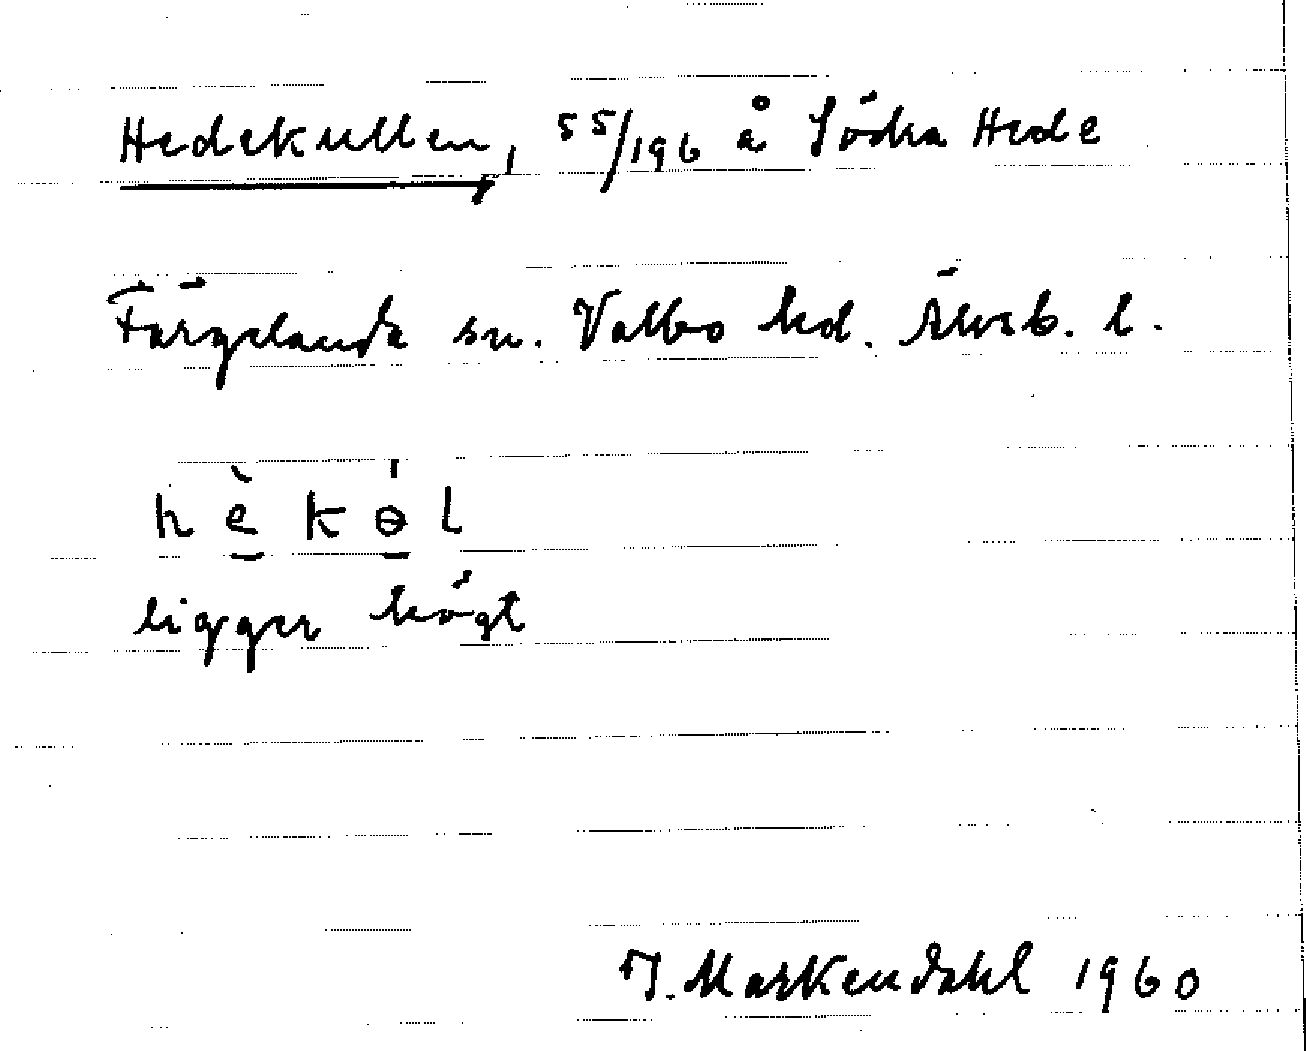 Hedekullen, 55/196 å Södra Hede
Färgelanda sn. Valbo hd. Älvsb. l.
h è̱ k ɵ̱́ l
ligger högt
J. Markendahl 1960